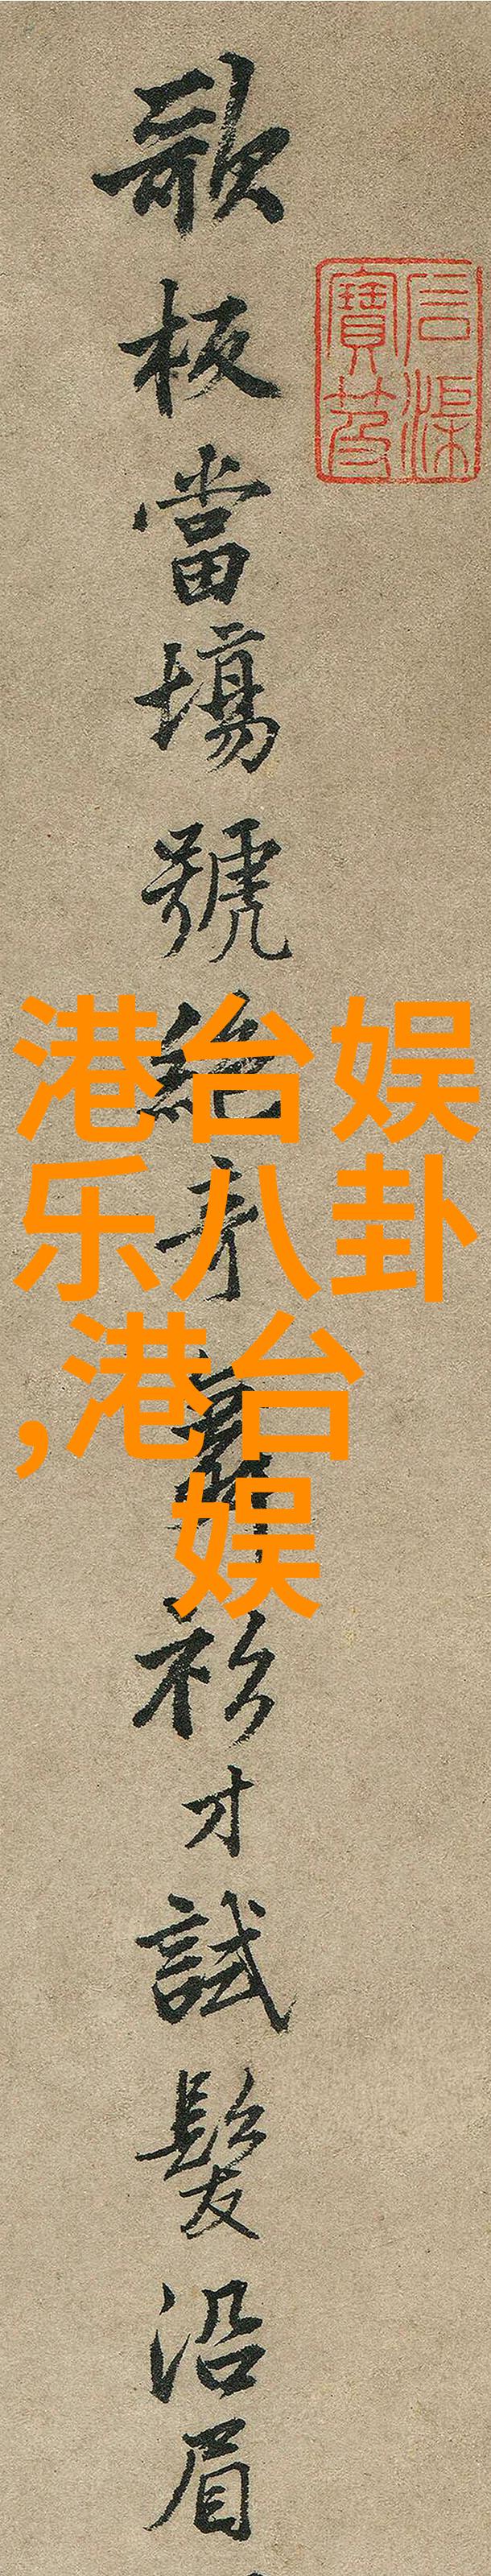 石渠
寶笈
歌板當塲號絶奇舞衫才試髮沿眉
港台娱
乐八卦
,港台
娱